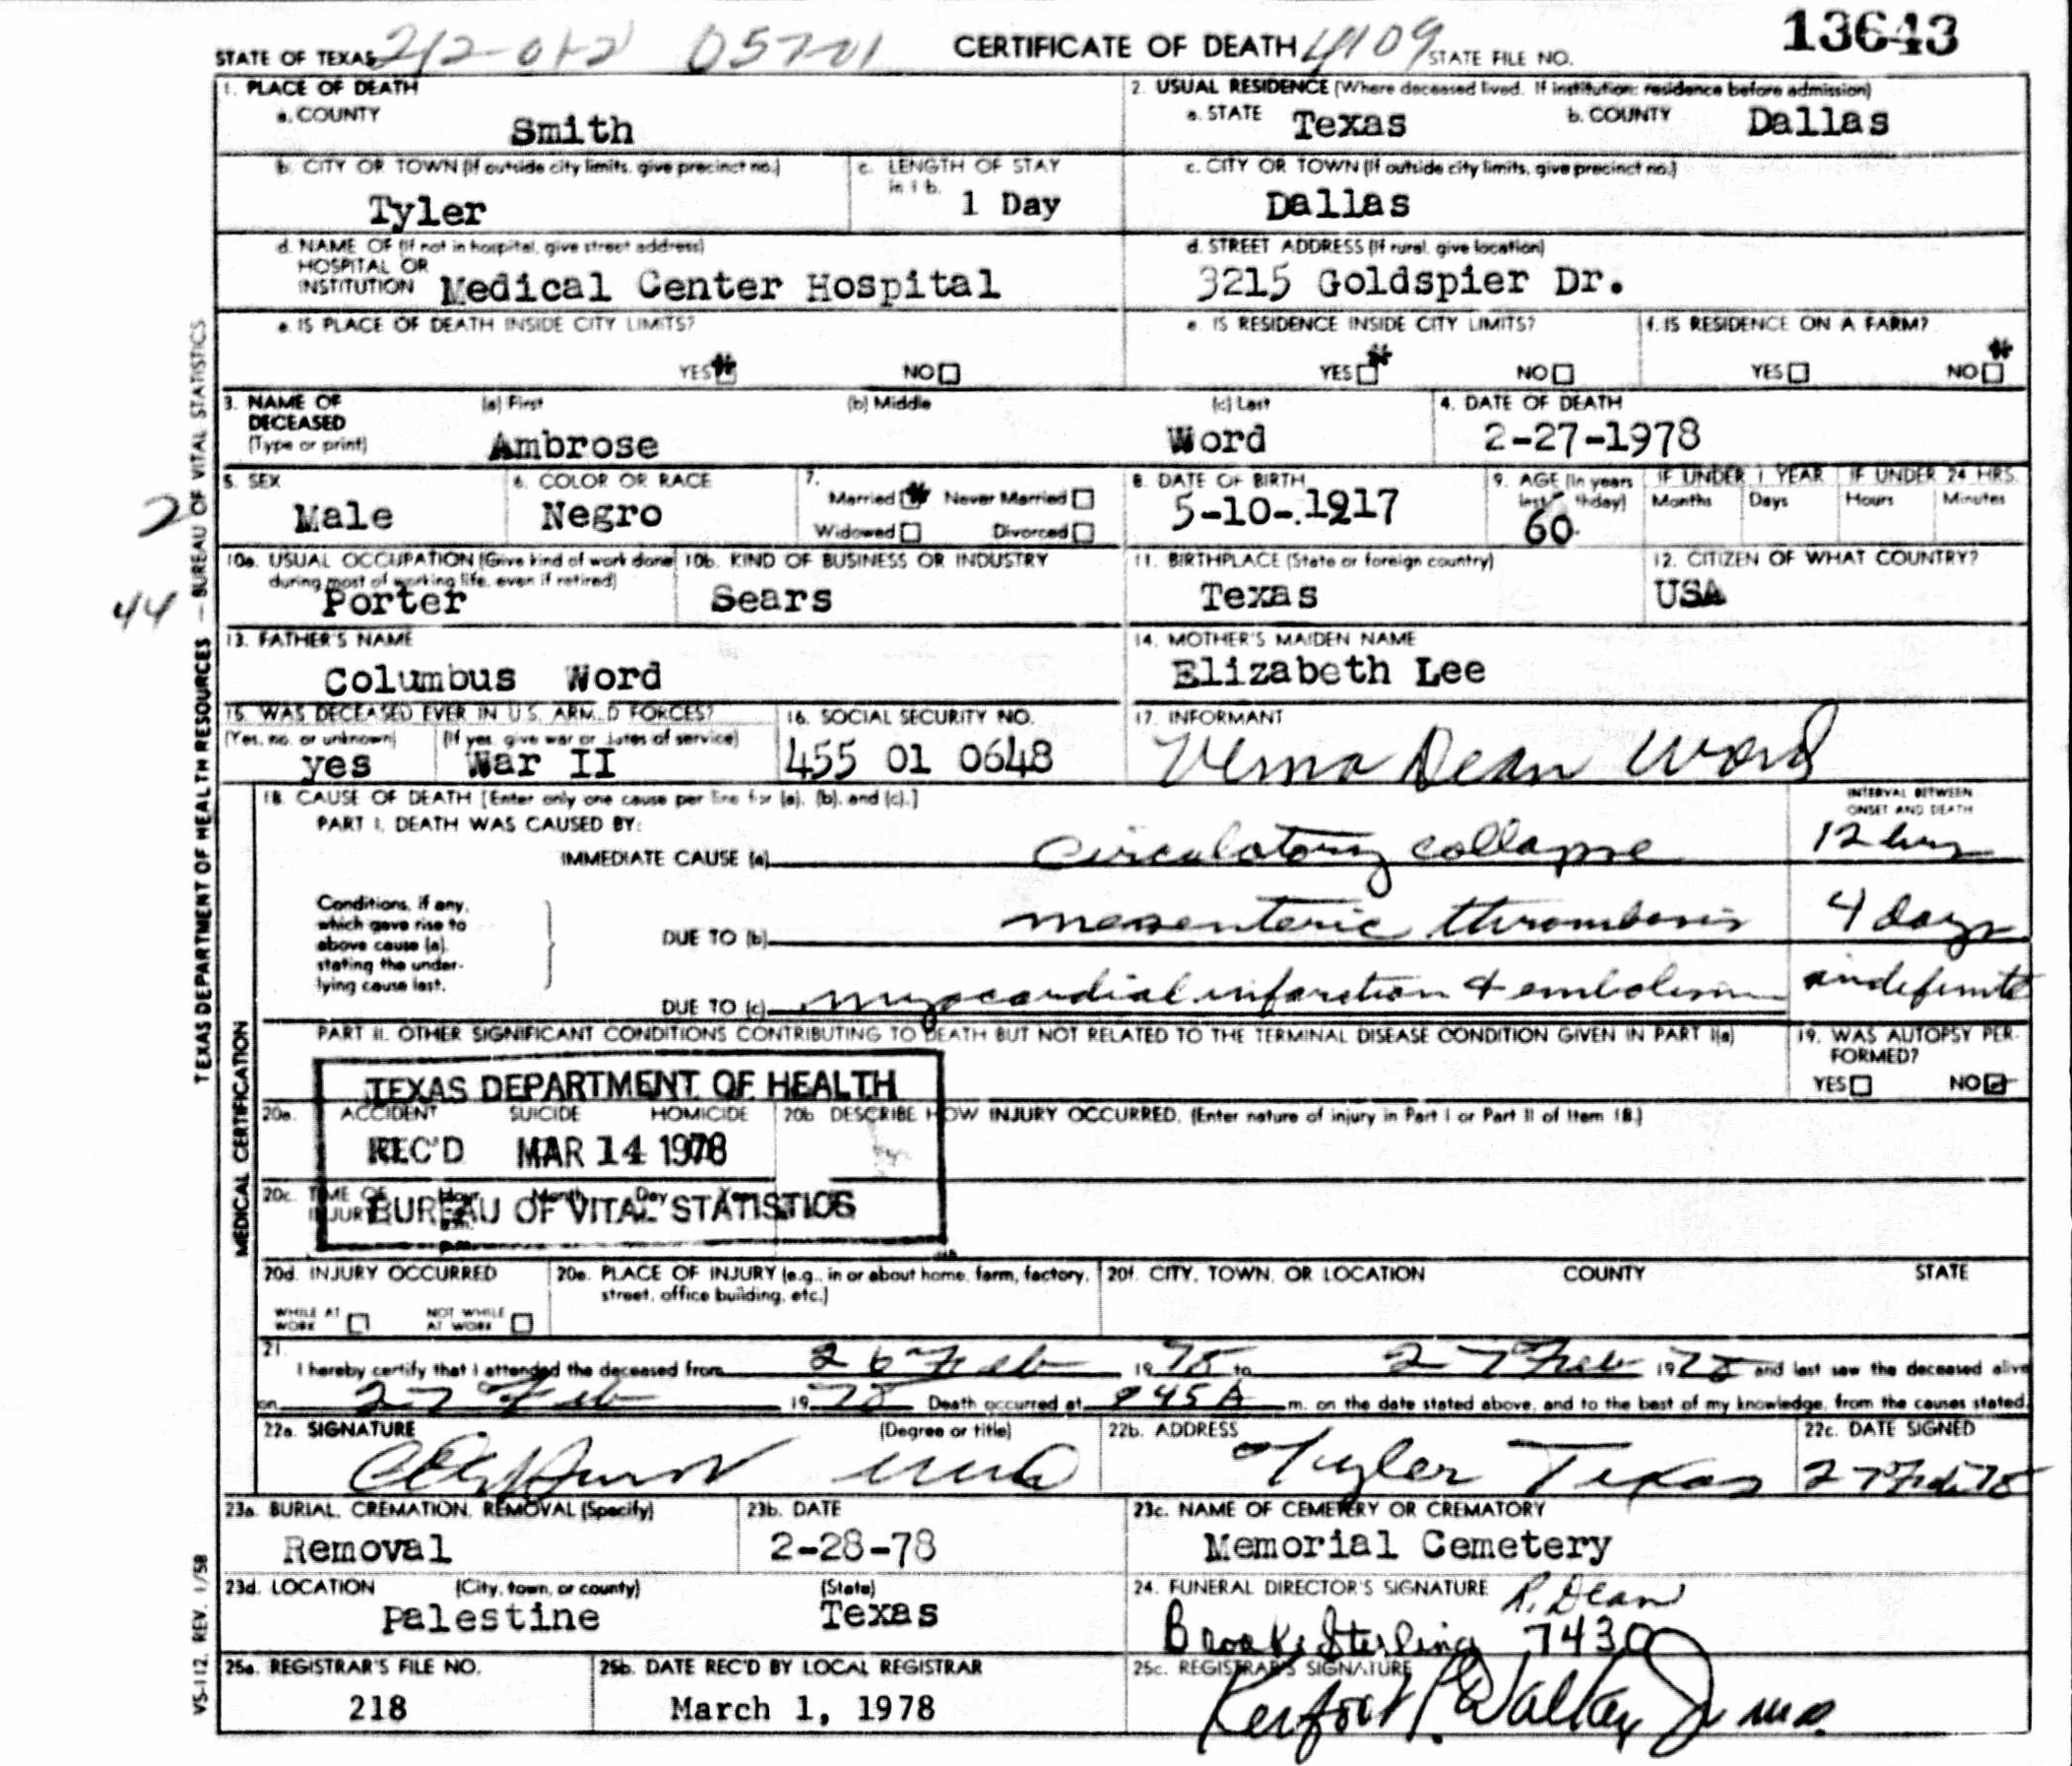 STATE OF TEXAS 212-012 05701 CERTIFICATE OF DEATH 4109 STATE FILE NO. 13643
1. PLACE OF DEATH
a. COUNTY
Smith
2. USUAL RESIDENCE (Where deceased lived. If institution: residence before admission)
a. STATE Texas b. COUNTY Dallas
b. CITY OR TOWN (If outside city limits, give precinct no.)
Tyler
c. LENGTH OF STAY
in 1 b.
1 Day
c. CITY OR TOWN (If outside city limits, give precinct no.)
Dallas
d. NAME OF (If not in hospital, give street address)
HOSPITAL OR
INSTITUTION Medical Center Hospital
d. STREET ADDRESS (If rural, give location)
3215 Goldspier Dr.
e. IS PLACE OF DEATH INSIDE CITY LIMITS?
YES NO
e. IS RESIDENCE INSIDE CITY LIMITS?
YES NO
f. IS RESIDENCE ON A FARM?
YES NO
3. NAME OF
DECEASED
(Type or print)
(a) First
Ambrose
(b) Middle
(c) Last
Word
4. DATE OF DEATH
2-27-1978
5. SEX
Male
6. COLOR OR RACE
Negro
7.
Married Never Married
Widowed Divorced
8. DATE OF BIRTH
5-10-.1917
9. AGE (In years
last thday)
60
IF UNDER 1 YEAR
Months Days
IF UNDER 24 HRS.
Hours Minutes
10a. USUAL OCCUPATION (Give kind of work done
during most of working life, even if retired)
Porter
10b. KIND OF BUSINESS OR INDUSTRY
Sears
11. BIRTHPLACE (State or foreign country)
Texas
12. CITIZEN OF WHAT COUNTRY?
USA
13. FATHER'S NAME
Columbus Word
14. MOTHER'S MAIDEN NAME
Elizabeth Lee
15. WAS DECEASED EVER IN U.S. ARM.D FORCES?
(Yes, no. or unknown) (If yes, give war or dates of service)
yes War II
16. SOCIAL SECURITY NO.
455 01 0648
17. INFORMANT
Verna Dean Word
18. CAUSE OF DEATH [Enter only one cause per line for (a), (b), and (c).]
INTERVAL BETWEEN
ONSET AND DEATH
PART I. DEATH WAS CAUSED BY:
IMMEDIATE CAUSE (a) circulatory collapse 12 hrs
Conditions, if any,
which gave rise to
above cause (a),
stating the under-
lying cause last.
DUE TO (b) mesenteric thrombosis 4 days
DUE TO (c) myocardial infarction & embolism indefinite
PART II. OTHER SIGNIFICANT CONDITIONS CONTRIBUTING TO DEATH BUT NOT RELATED TO THE TERMINAL DISEASE CONDITION GIVEN IN PART I(a)
19. WAS AUTOPSY PER-
FORMED?
YES NO
TEXAS DEPARTMENT OF HEALTH
REC'D MAR 14 1978
BUREAU OF VITAL STATISTICS
20a. ACCIDENT SUICIDE HOMICIDE
20b DESCRIBE HOW INJURY OCCURRED. (Enter nature of injury in Part I or Part II of Item 18.)
20c. TIME OF Hour Month Day Year
INJURY
p.m.
20d. INJURY OCCURRED
WHILE AT
WORK
NOT WHILE
AT WORK
20e. PLACE OF INJURY (e.g., in or about home, farm, factory,
street, office building, etc.)
20f. CITY, TOWN, OR LOCATION COUNTY STATE
21.
I hereby certify that I attended the deceased from 26 Feb 1978 to 27 Feb 1978 and last saw the deceased alive
on 27 Feb 1978 Death occurred at 845 A m. on the date stated above, and to the best of my knowledge, from the causes stated.
22a. SIGNATURE (Degree or title)
22b. ADDRESS
Tyler Texas
22c. DATE SIGNED
27 Feb 78
23a. BURIAL, CREMATION, REMOVAL (Specify)
Removal
23b. DATE
2-28-78
23c. NAME OF CEMETERY OR CREMATORY
Memorial Cemetery
23d. LOCATION (City, town, or county) (State)
Palestine Texas
24. FUNERAL DIRECTOR'S SIGNATURE R. Dean
Brooks Sterling 7430
25a. REGISTRAR'S FILE NO.
218
25b. DATE REC'D BY LOCAL REGISTRAR
March 1, 1978
25c. REGISTRAR'S SIGNATURE
Walker Jr. M.D.
TEXAS DEPARTMENT OF HEALTH RESOURCES — BUREAU OF VITAL STATISTICS
MEDICAL CERTIFICATION
VS-112. REV. 1/58
2
44